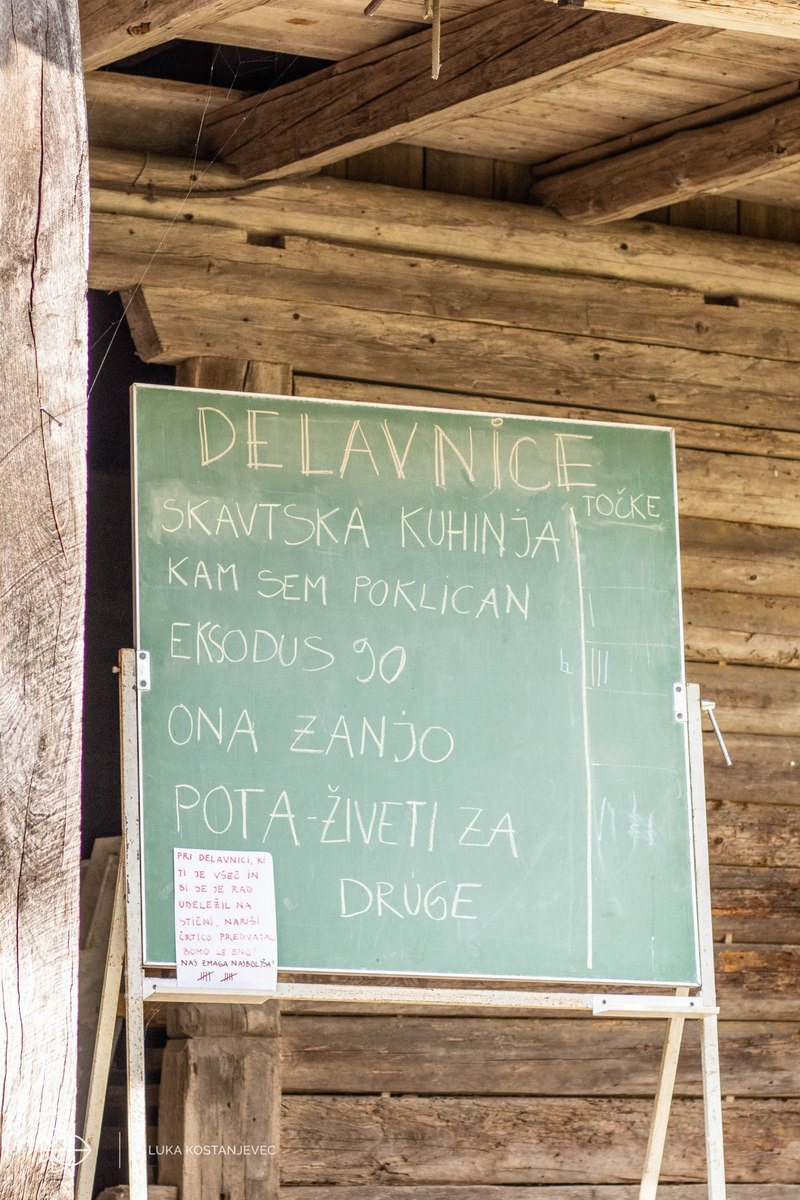 DELAVNICE
TOČKE
SKAVTSKA KUHINJA
KAM SEM POKLICAN
EKSODUS 90
ONA ZANJO
POTA-ŽIVETI ZA
DRUGE
PRI DELAVNICI, KI
TI JE VŠEČ IN
BI SE JE RAD
UDELEŽIL NA
STIČNI, NARIŠI
ČRTICO. PREDVAJAL
BOMO LE ENO!
NAJ ZMAGA NAJBOLJŠA!
LUKA KOSTANJEVEC